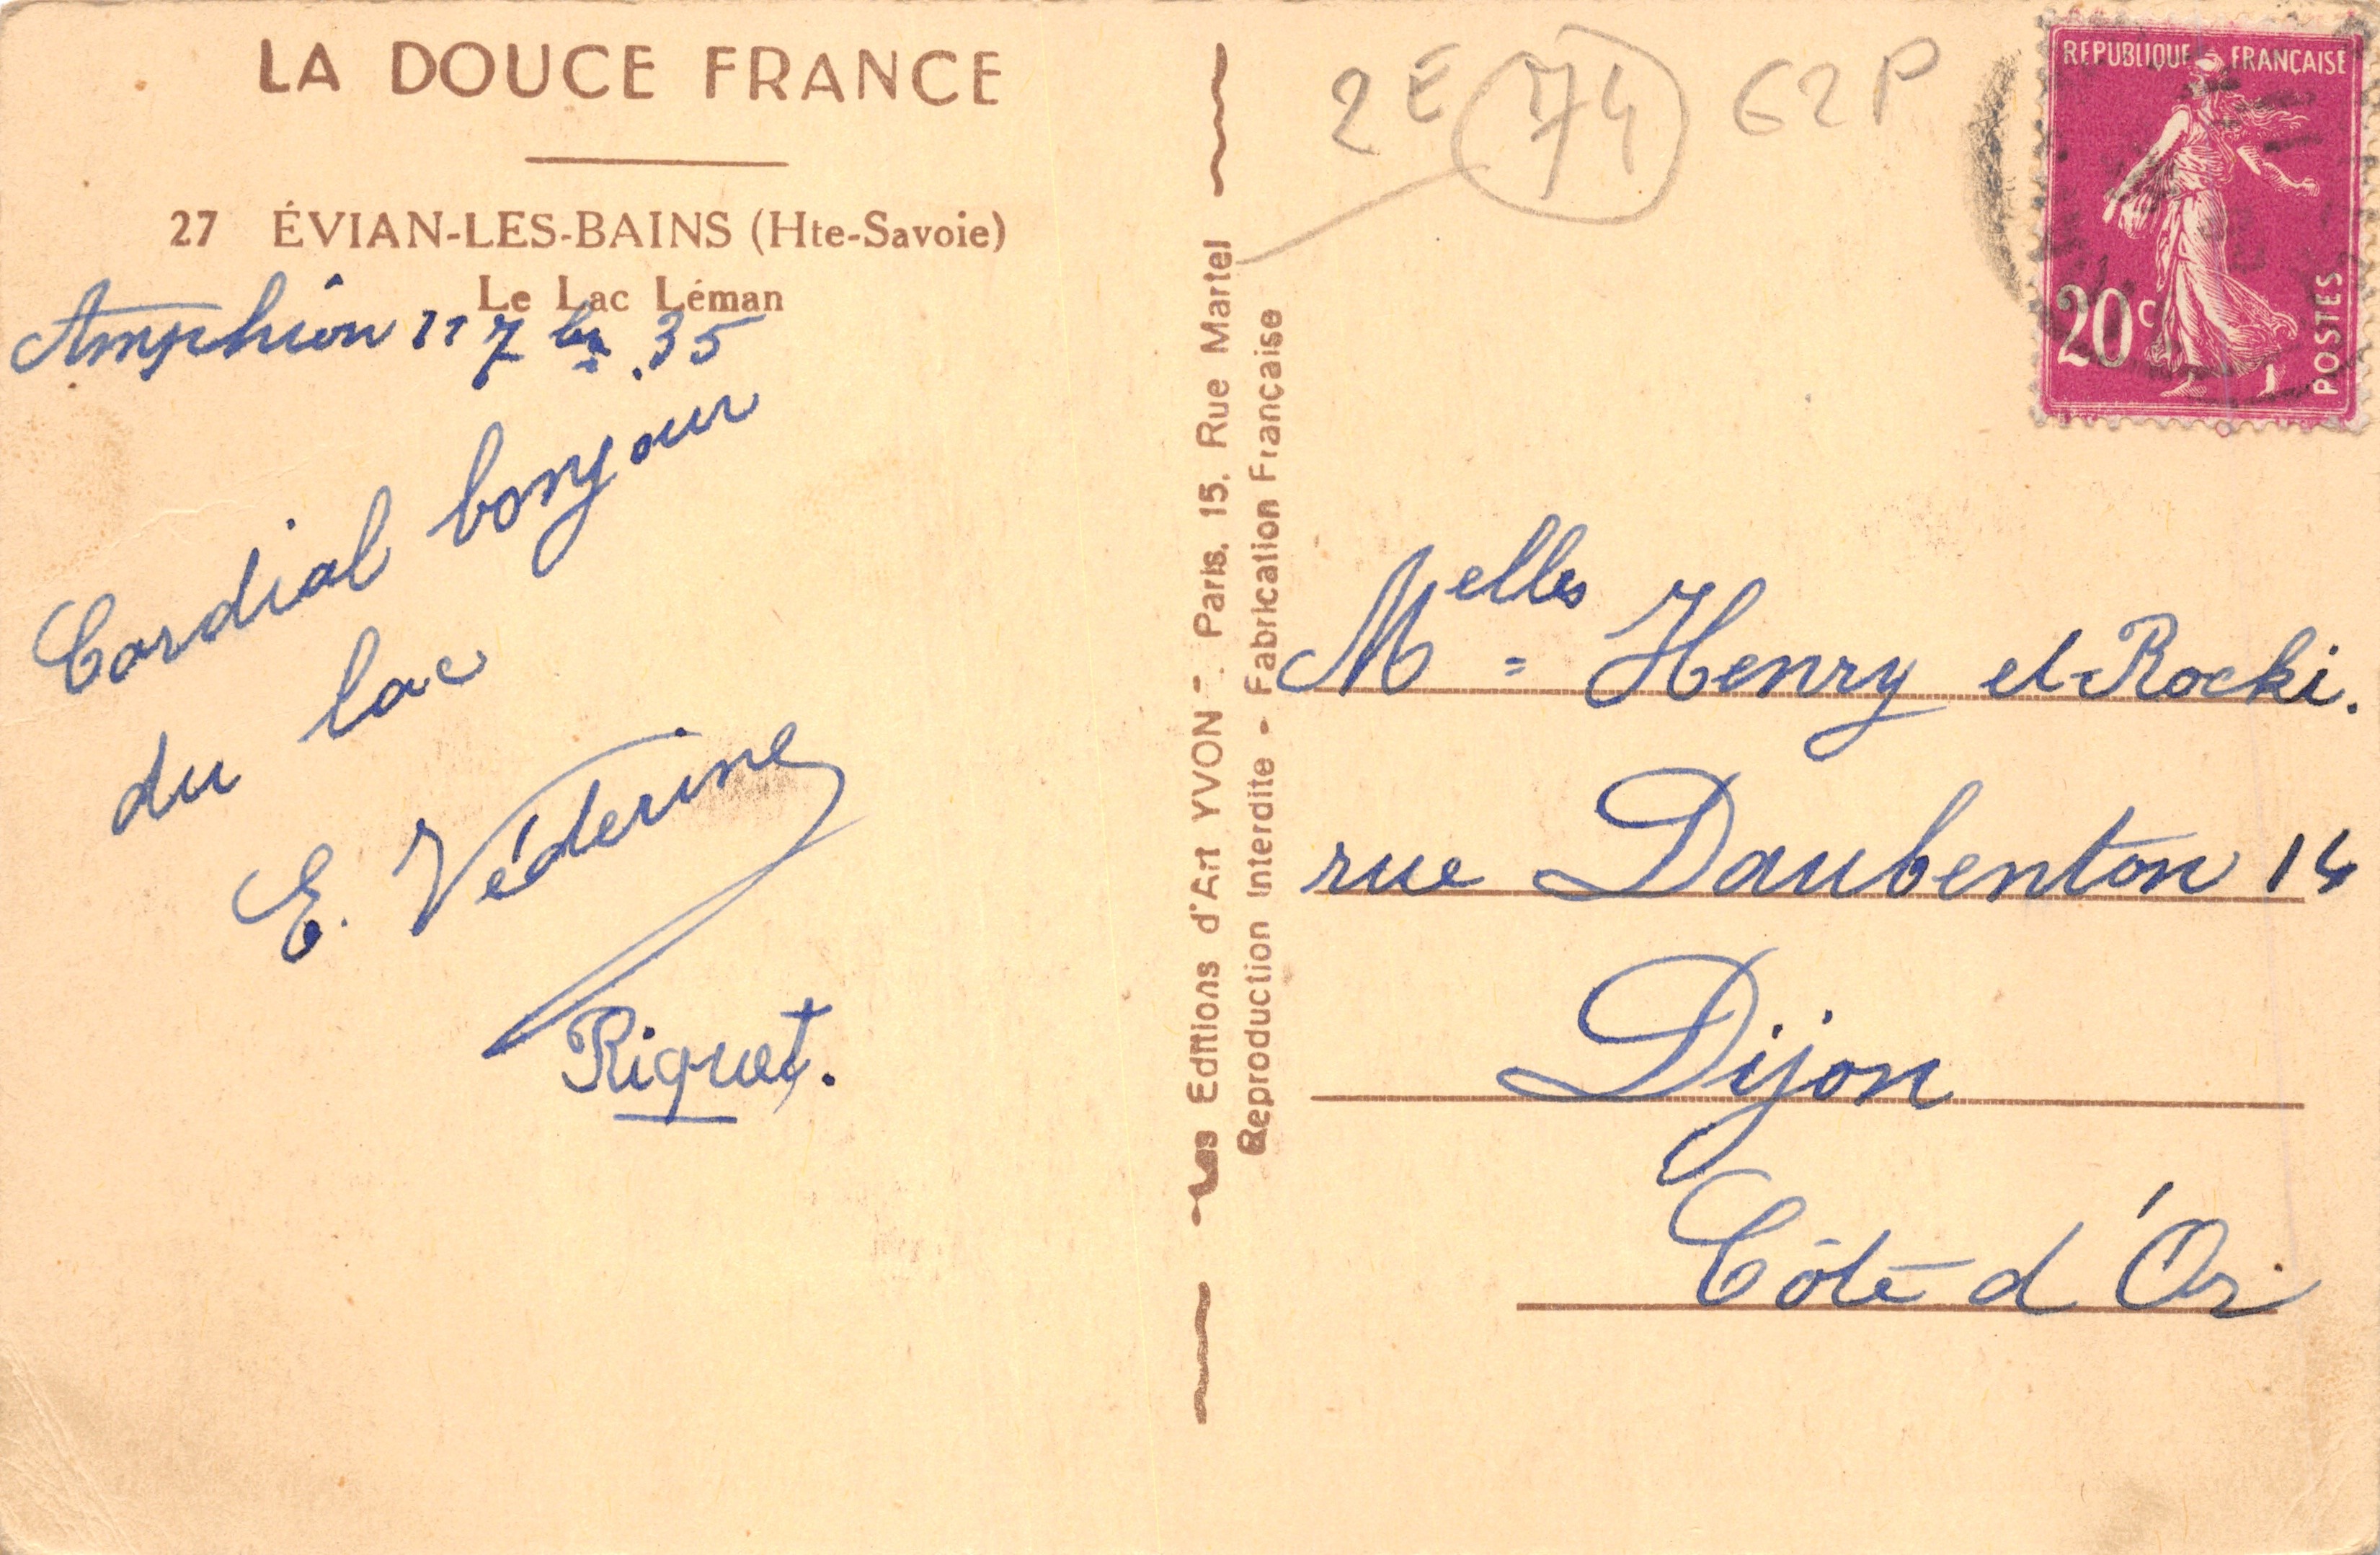 LA DOUCE FRANCE
27 ÉVIAN-LES-BAINS (Hte-Savoie)
Le Lac Léman
Amphion 11 7bre 35
Cordial bonjour
du lac
E. Véderine
Riquet.
Les Editions d'Art YVON - Paris, 15, Rue Martel
Reproduction Interdite - Fabrication Française
2E 74 62P
REPUBLIQUE FRANÇAISE
20c
POSTES
Melles Henry et Rocki.
rue Daubenton 14
Dijon
Côte d'Or